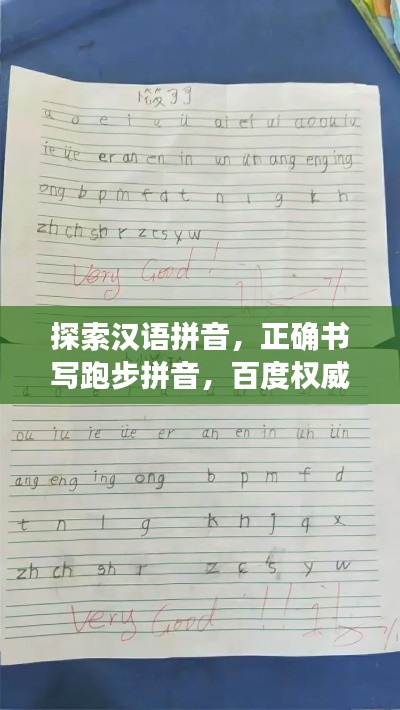 a o e i u ü ai ei ui ao ou iu
ie üe er an en in un ün ang eng ing
ong b p m f d t n l g k h
zh ch sh r z c s y w
Very Good!
探索汉语拼音，正确书
写跑步拼音，百度权威
ou iu ie üe er an en in un ün
ang eng ing ong b p m f d
t n l g k h j q x
zh ch sh r z c s y w
Very Good!!